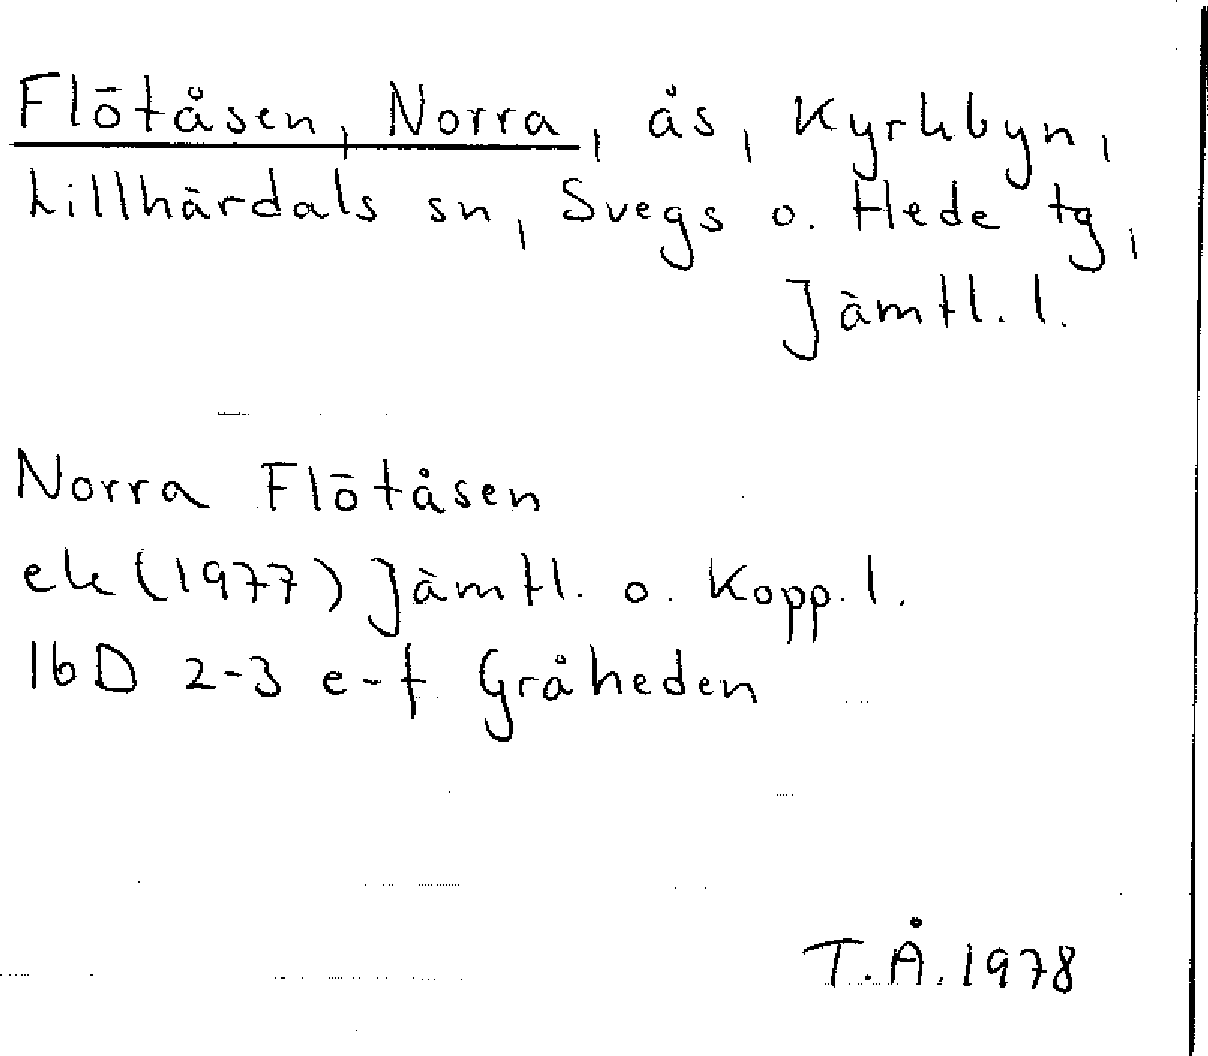 Flötåsen, Norra, ås, Kyrkbyn,
Lillhärdals sn, Svegs o. Hede tg,
Jämtl. l.
Norra Flötåsen
ek (1977) Jämtl. o. Kopp. l.
16D 2-3 e-f Gråheden
T.Å. 1978